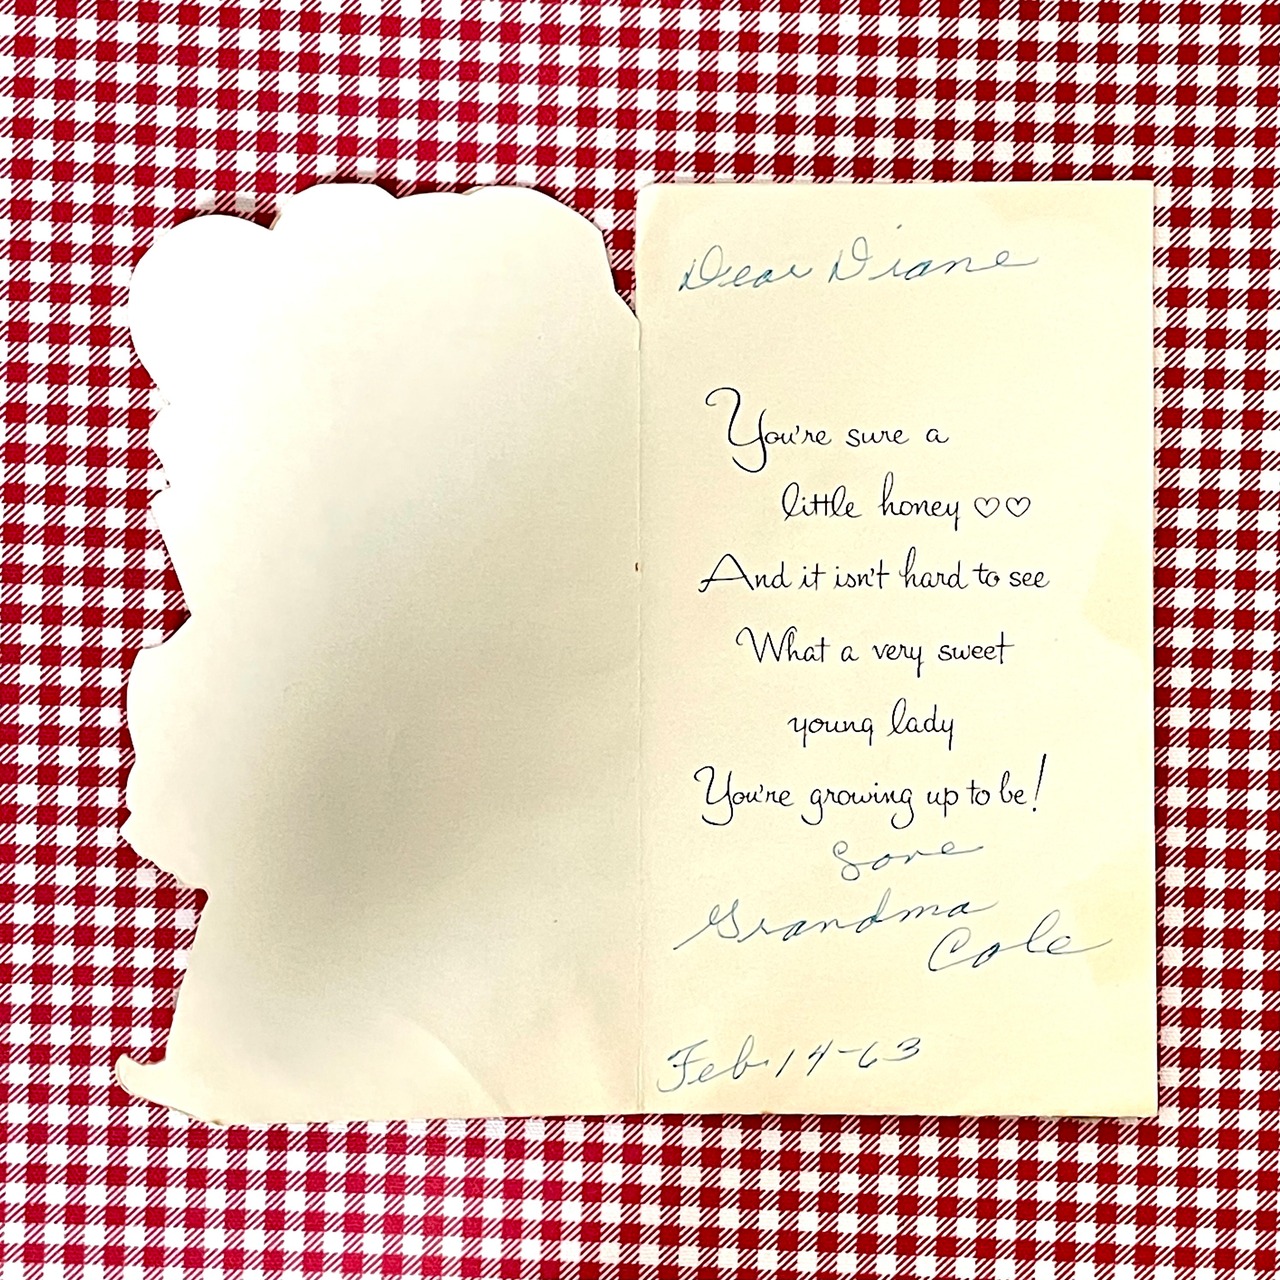 Dear Diane
You're sure a
little honey ♡♡
And it isn't hard to see
What a very sweet
young lady
You're growing up to be!
Love
Grandma
Cole
Feb. 14-63